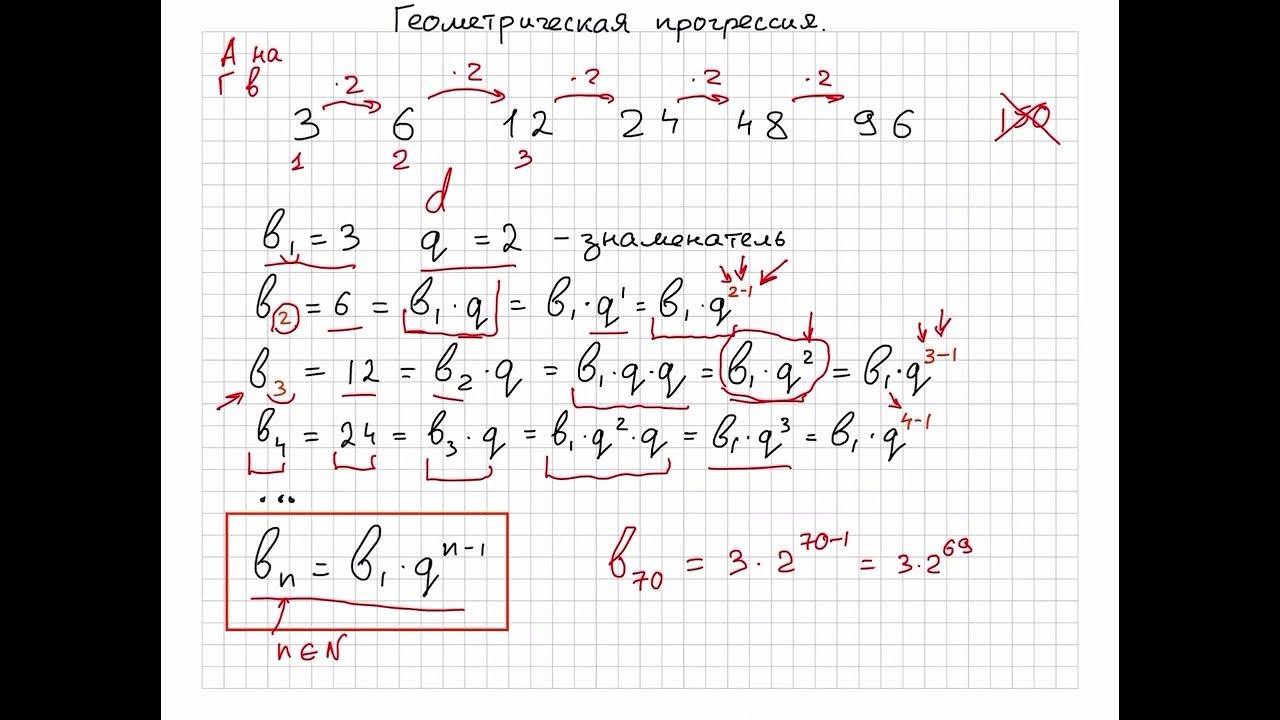 Геометрическая прогрессия.
А на
Г в
·2 ·2 ·2 ·2 ·2
3 6 12 24 48 96 150
1 2 3
d
b₁ = 3 q = 2 – знаменатель
b₂ = 6 = b₁·q = b₁·q¹ = b₁·q²⁻¹
b₃ = 12 = b₂·q = b₁·q·q = b₁·q² = b₁·q³⁻¹
b₄ = 24 = b₃·q = b₁·q²·q = b₁·q³ = b₁·q⁴⁻¹
...
bₙ = b₁·qⁿ⁻¹ b₇₀ = 3·2⁷⁰⁻¹ = 3·2⁶⁹
n ∈ N